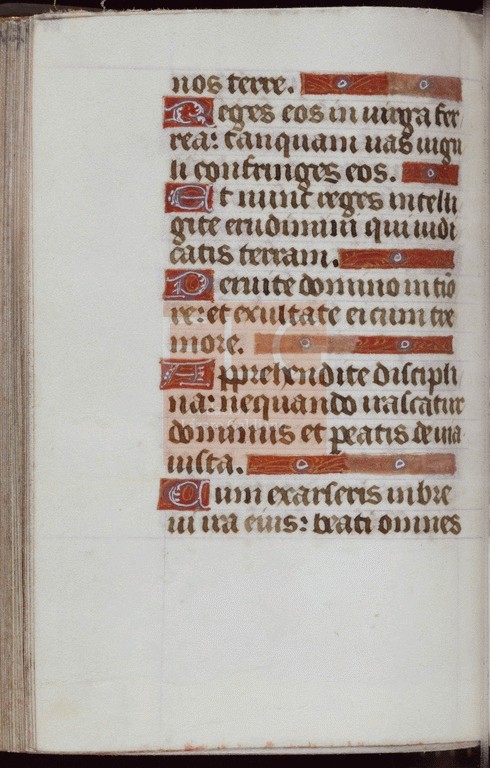 nos terre.
Reges eos in uirga fer
rea: tanquam uas uigu
li confringes eos.
Et nunc reges intelli
gite erudimini qui iudi
catis terram.
Seruite domino in tio
re: et exultate ei cum tre
more.
Apprehendite discipli
na: nequando irascatur
dominus et peatis de uia
iusta.
Cum exarserit in bre
ui ira eius: beati omnes